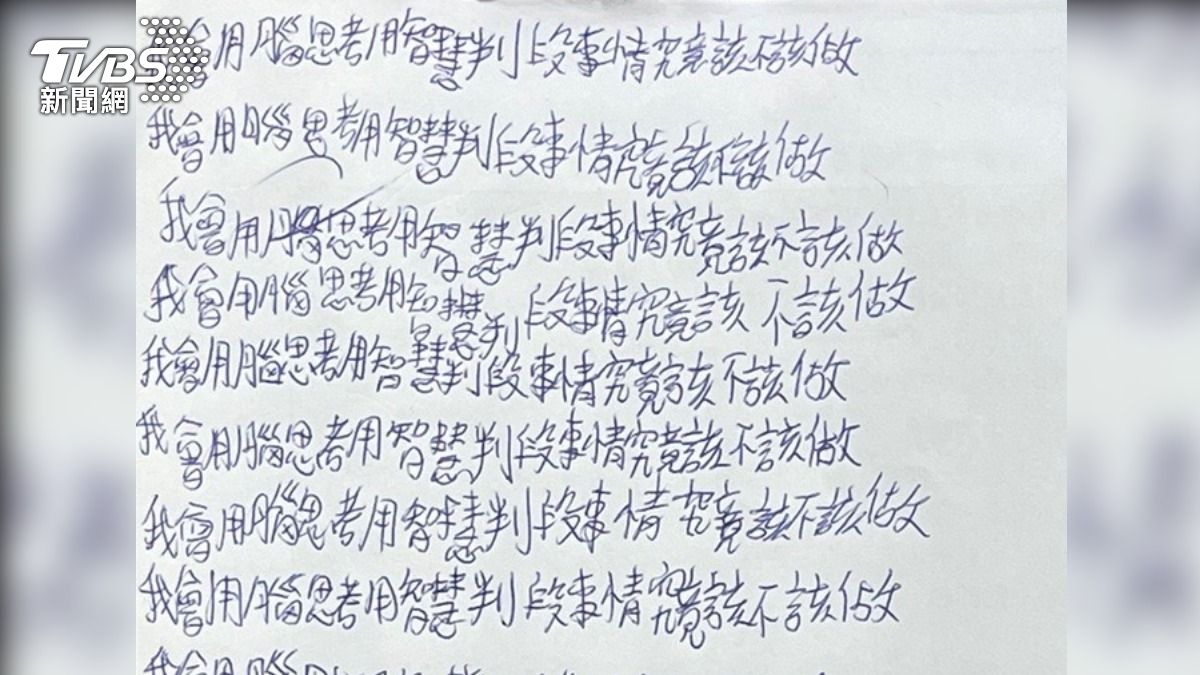 TVBS
新聞網
會用腦思考用智慧判段事情究竟該不該做
我會用腦思考用智慧判段事情究竟該不該做
我會用腦思考用智慧判段事情究竟該不該做
我會用腦思考用智慧判段事情究竟該不該做
我會用腦思考用智慧判段事情究竟該不該做
我會用腦思考用智慧判段事情究竟該不該做
我會用腦思考用智慧判段事情究竟該不該做
我會用腦思考用智慧判段事情究竟該不該做
我會用腦